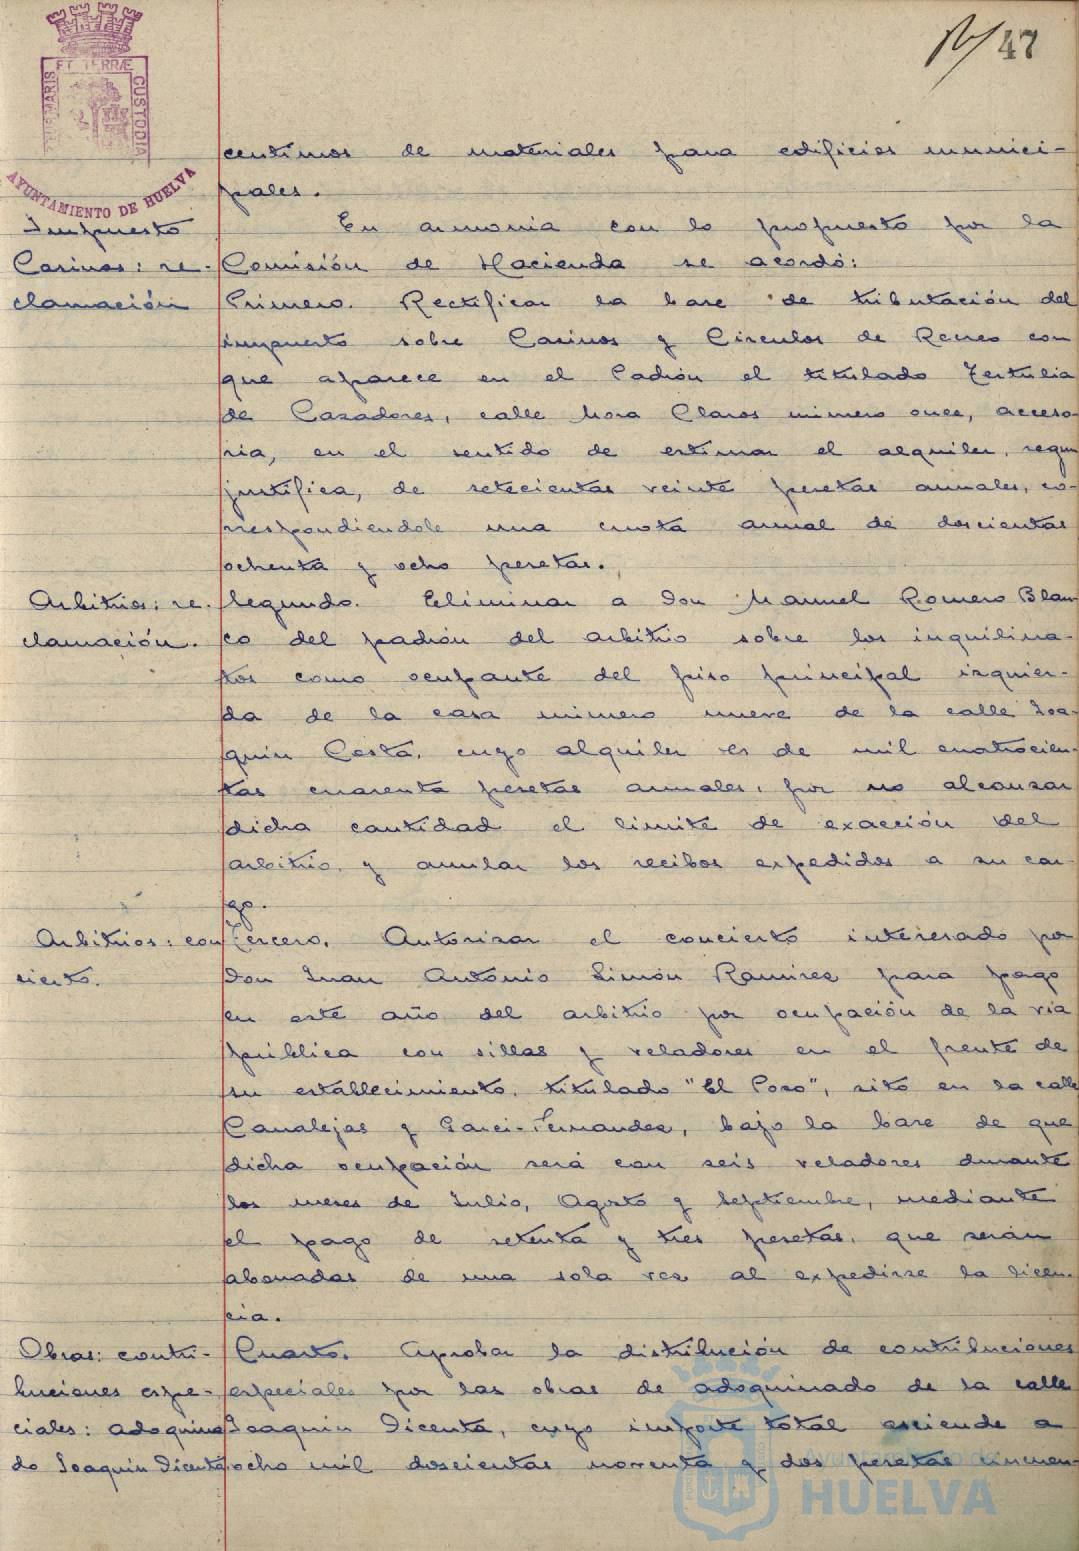 47
PORTUS MARIS ET TERRÆ CUSTODIA
AYUNTAMIENTO DE HUELVA
centimos de materiales para edificios munici-
pales.
Impuesto
Casinos: re-
clamación
En armonia con lo propuesto por la
Comisión de Hacienda se acordó:
Primero. Rectificar la base de tributación del
impuesto sobre Casinos y Circulos de Recreo con
que aparece en el Padrón el titulado Tertulia
de Cazadores, calle Mora Claros número once, acceso-
ria, en el sentido de estimar el alquiler, segun
justifica, de setecientas veinte pesetas anuales, co-
rrespondiendole una cuota anual de doscientas
ochenta y ocho pesetas.
Arbitrios: re-
clamación.
Segundo. Eliminar a Don Manuel Romero Blan-
co del padrón del arbitrio sobre los inquilina-
tos como ocupante del piso principal izquier-
da de la casa número nueve de la calle Joa-
quin Costa, cuyo alquiler es de mil cuatrocien-
tas cuarenta pesetas anuales, por no alcanzar
dicha cantidad el limite de exacción del
arbitrio, y anular los recibos expedidos a su car-
go.
Arbitrios: con
cierto.
Tercero. Autorizar el concierto interesado por
Don Juan Antonio Simón Ramirez para pago
en este año del arbitrio por ocupación de la via
pública con sillas y veladores en el frente de
su establecimiento, titulado "El Pozo", sito en la calle
Canalejas y Garci-Fernandez, bajo la base de que
dicha ocupación será con seis veladores durante
los meses de Julio, Agosto y Septiembre, mediante
el pago de setenta y tres pesetas, que serán
abonadas de una sola vez al expedirse la licen-
cia.
Obras: contri-
buciones espe-
ciales: adoquina
do Joaquin Dicenta
Cuarto. Aprobar la distribución de contribuciones
especiales por las obras de adoquinado de la calle
Joaquin Dicenta, cuyo importe total asciende a
ocho mil doscientas noventa y dos pesetas cincuen-
Ayuntamiento de
HUELVA